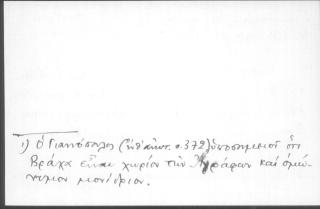 1) Ὁ Γιαννόπουλος (ἔνθ' ἀνωτ. σ. 372) ὑποσημειοῖ ὅτι
Βράχα εἶναι χωρίον τῶν Ἀγράφων καὶ ὁμώ-
νυμον μονύδριον.